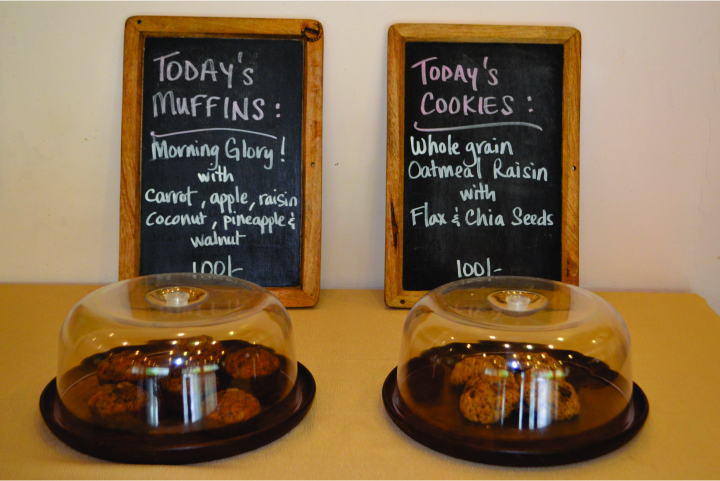 TODAY'S
MUFFINS :
Morning Glory!
with
carrot, apple, raisin
coconut, pineapple &
walnut
100/-
TODAY'S
COOKIES :
Whole grain
Oatmeal Raisin
with
Flax & Chia Seeds
100/-